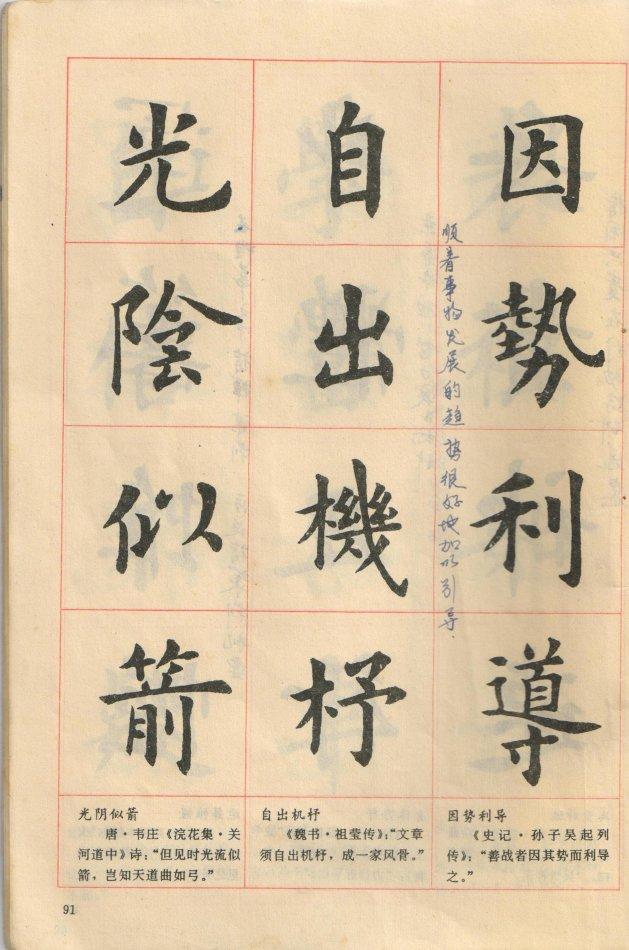 因勢利導
顺着事物发展的趋势很好地加以引导.
自出機杼
光陰似箭
因势利导
《史记·孙子吴起列
传》:“善战者因其势而利导
之。”
自出机杼
《魏书·祖莹传》:“文章
须自出机杼,成一家风骨。”
光阴似箭
唐·韦庄《浣花集·关
河道中》诗:“但见时光流似
箭,岂知天道曲如弓。”
91